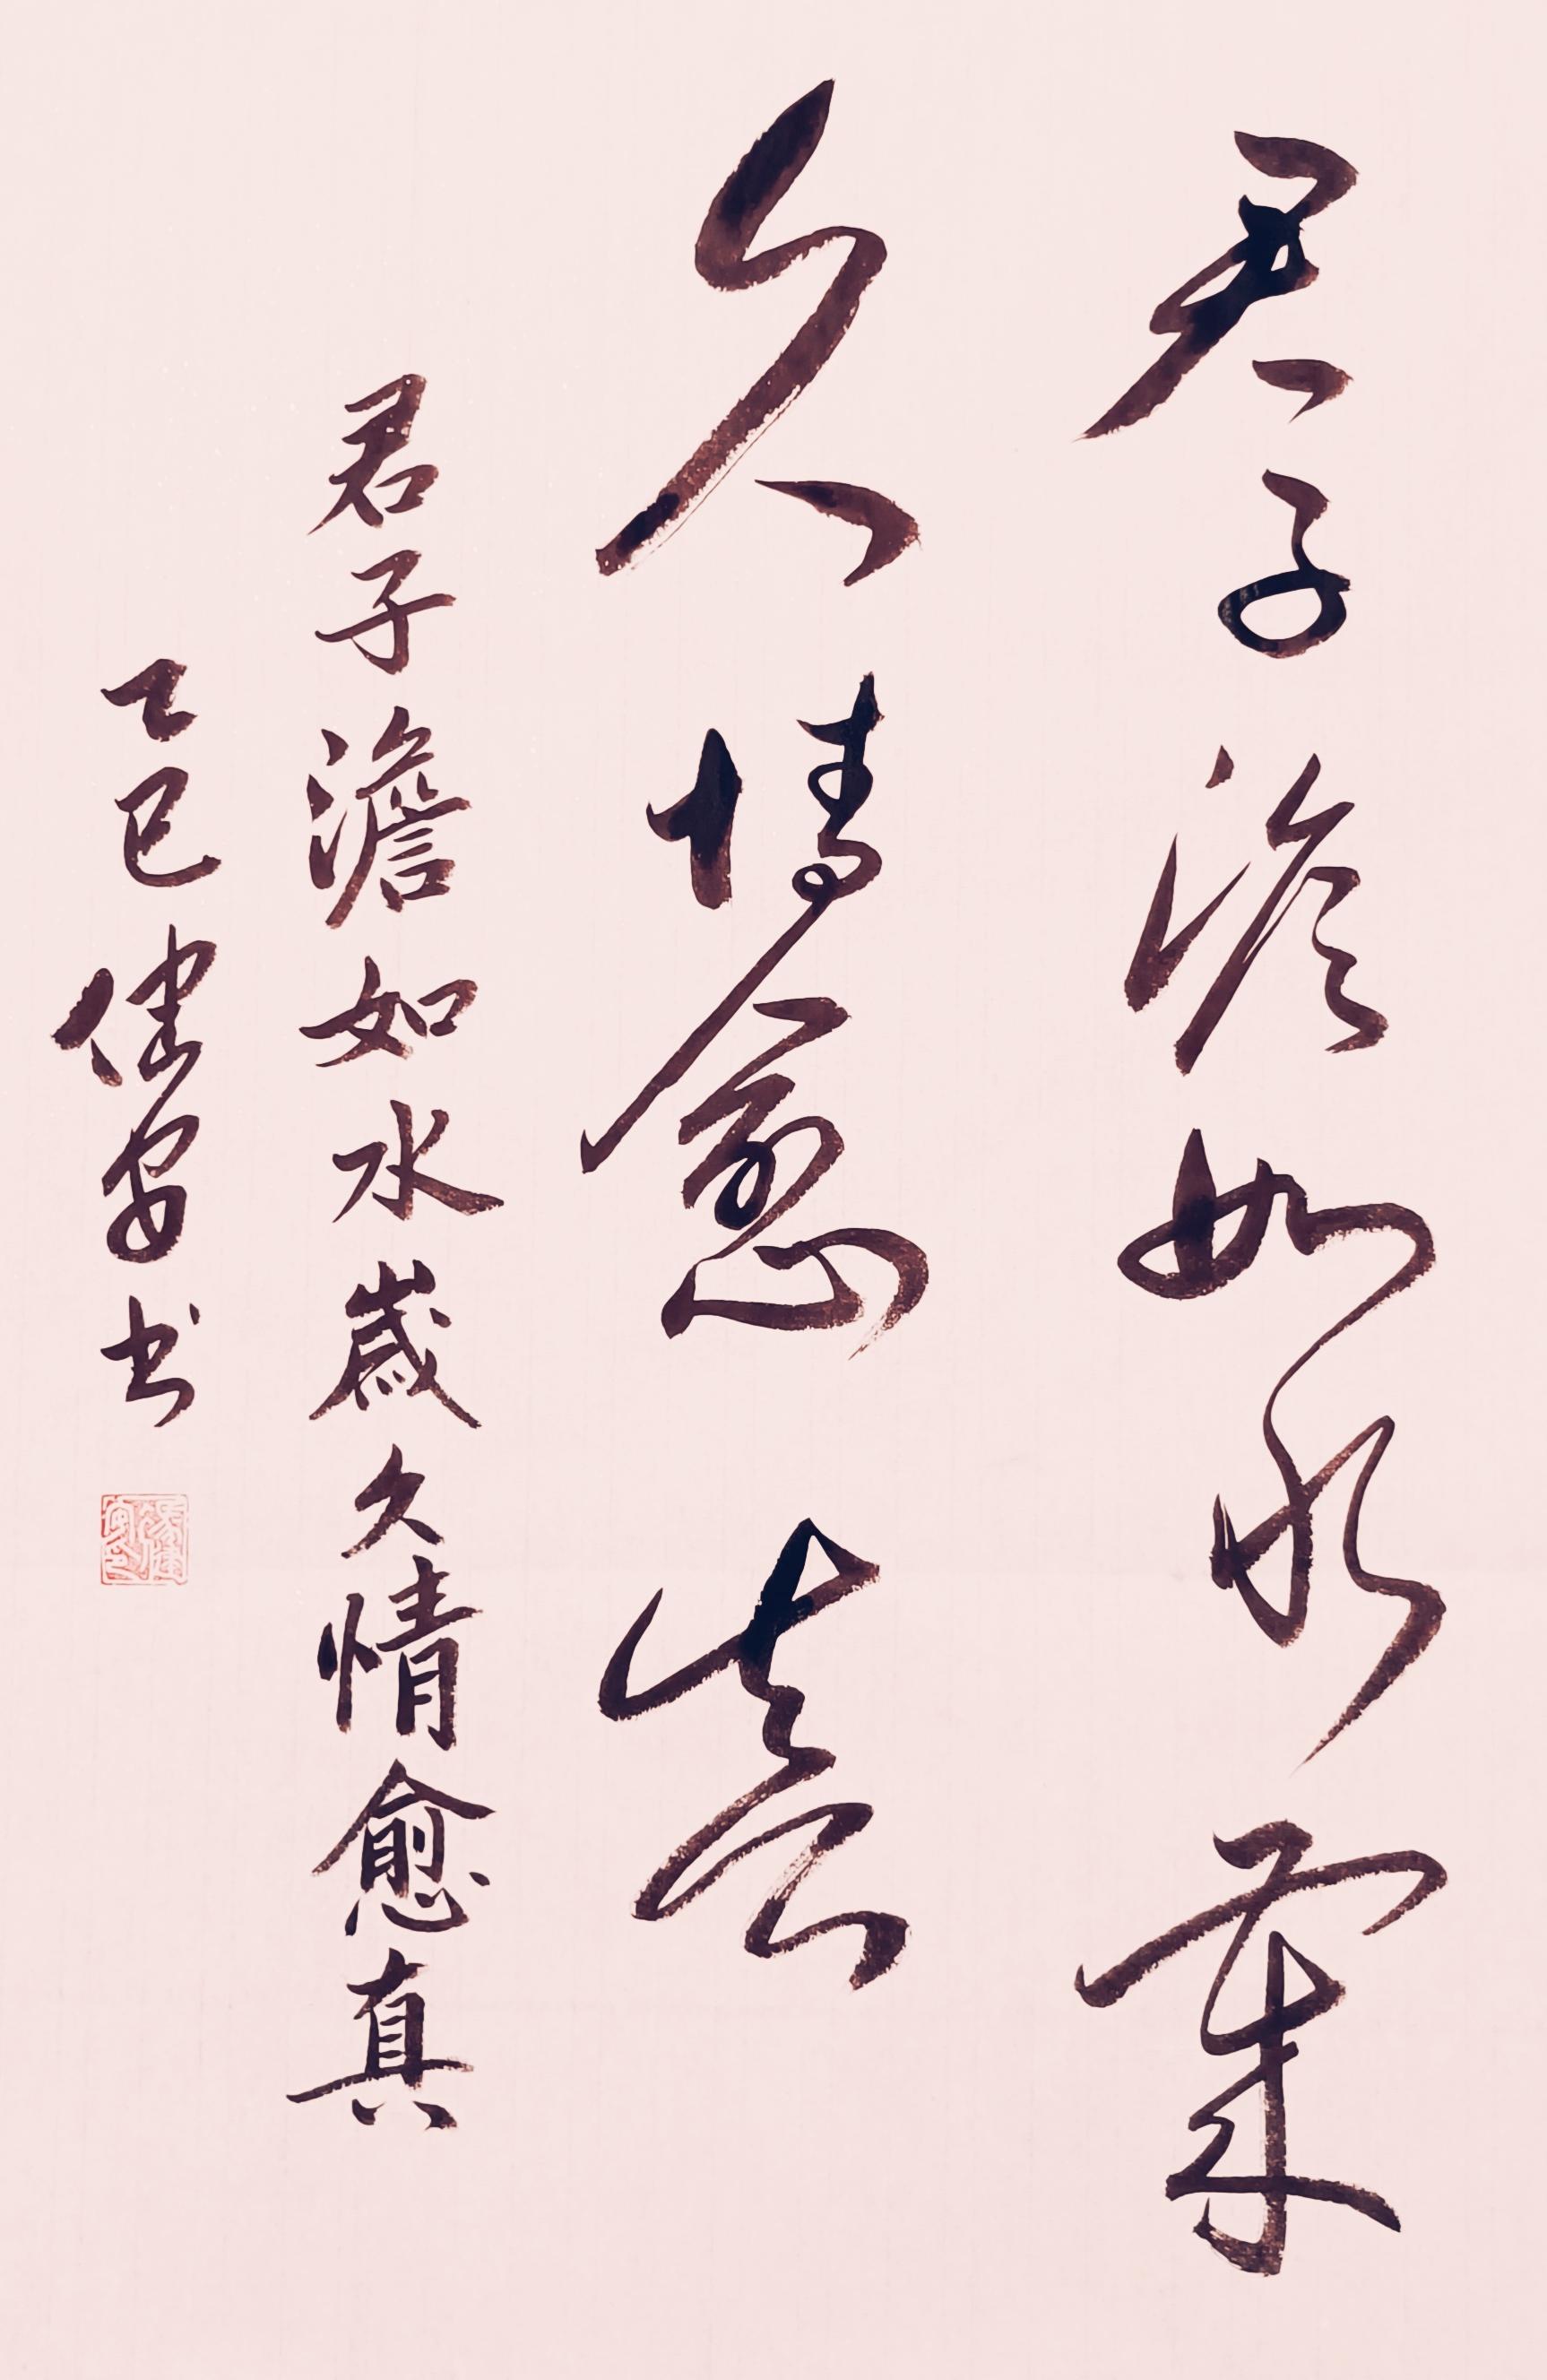 君子澹如水歲
久情愈真
君子澹如水歲久情愈真
乙巳健安书